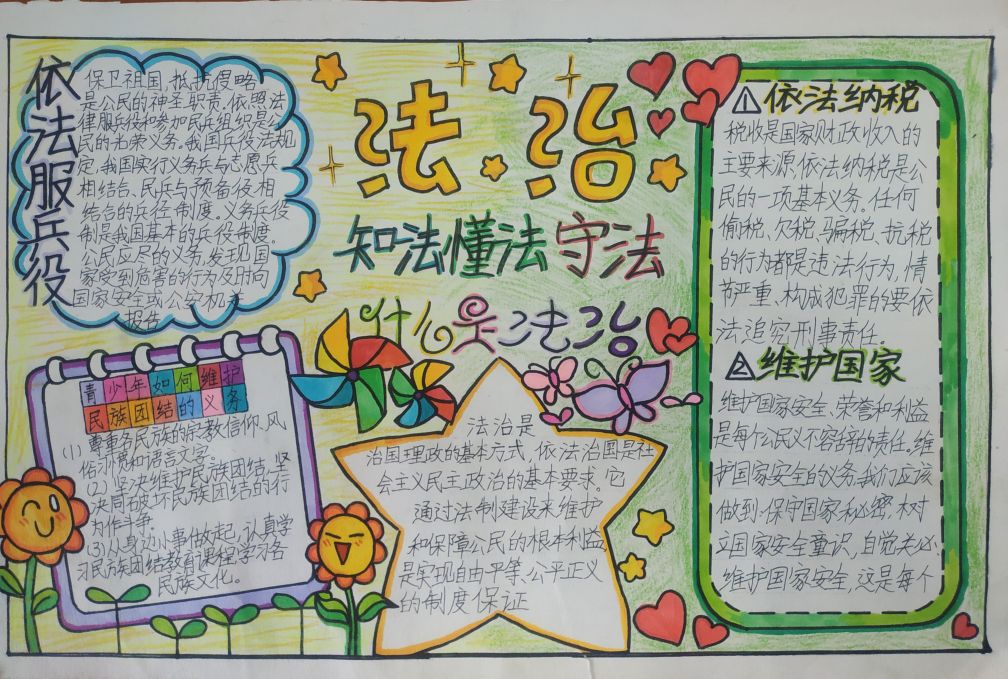 法治
知法懂法守法
依法服兵役
保卫祖国,抵抗侵略
是公民的神圣职责,依照法
律服兵役和参加民兵组织是公
民的光荣义务。我国兵役法规
定,我国实行义务兵与志愿兵
相结合、民兵与预备役相
结合的兵役制度。义务兵役
制是我国基本的兵役制度。
公民应尽的义务,发现国
家受到危害的行为及时向
国家安全或公安机关
报告
青少年如何维护
民族团结的义务
(1)尊重各民族的宗教信仰、风
俗习惯和语言文字。
(2)坚决维护民族团结,坚
决同破坏民族团结的行
为作斗争。
(3)从身边小事做起,认真学
习民族团结教育课程,学习各
民族文化。
什么是法治
法治是
治国理政的基本方式,依法治国是社
会主义民主政治的基本要求。它
通过法制建设来维护
和保障公民的根本利益,
是实现自由平等、公平正义
的制度保证
1 依法纳税
税收是国家财政收入的
主要来源,依法纳税是公
民的一项基本义务。任何
偷税、欠税、骗税、抗税
的行为都是违法行为,情
节严重、构成犯罪的要依
法追究刑事责任.
2 维护国家
维护国家安全、荣誉和利益
是每个公民义不容辞的责任。维
护国家安全的义务,我们应该
做到:保守国家秘密,树
立国家安全意识,自觉关心
维护国家安全,这是每个